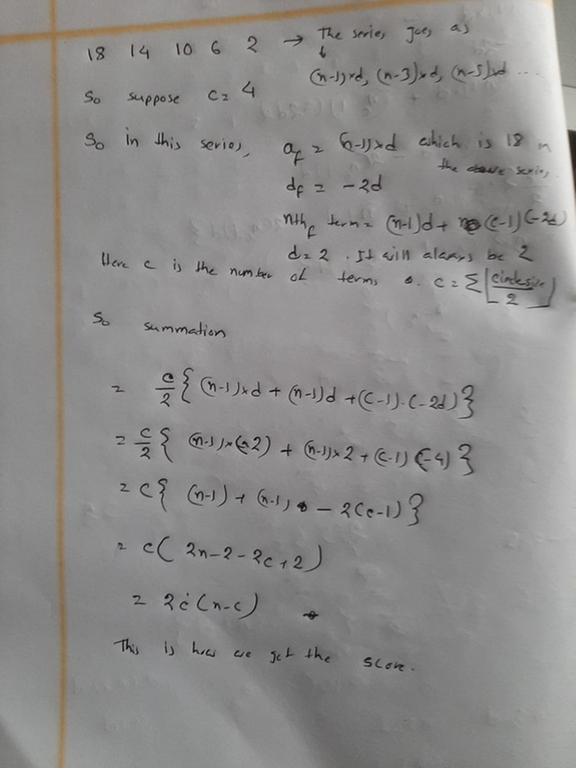 18 14 10 6 2 → The series goes as
↓
(n-1)×d, (n-3)×d, (n-5)×d ...
So suppose c = 4
So in this series, a_f = (n-1)×d which is 18 in
the above series.
d_f = -2d
nth_f term = (n-1)d + (c-1)(-2d)
d = 2. It will always be 2
Here c is the number of terms. c = Σ⌊circlesize/2⌋
So summation
= c/2 { (n-1)×d + (n-1)d + (c-1)·(-2d) }
= c/2 { (n-1)×(2) + (n-1)×2 + (c-1)(-4) }
= c { (n-1) + (n-1) - 2(c-1) }
= c( 2n-2-2c+2 )
= 2c(n-c)
This is how we get the score.